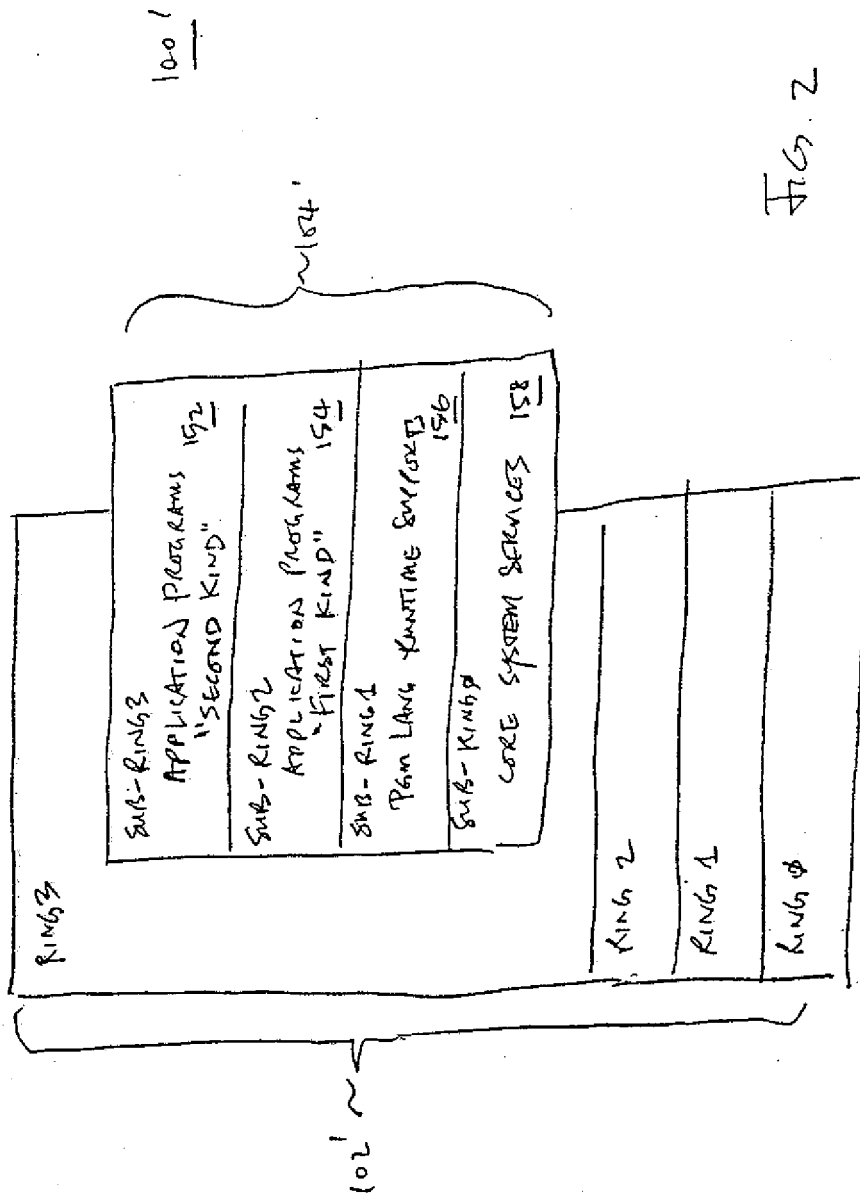 100'
RING 3
SUB-RING 3
APPLICATION PROGRAMS
"SECOND KIND" 152
SUB-RING 2
APPLICATION PROGRAMS
"FIRST KIND" 154
SUB-RING 1
PGM LANG RUNTIME SUPPORT
156
SUB-RING 0
CORE SYSTEM SERVICES 158
~104'
102' ~
RING 2
RING 1
RING 0
FIG. 2